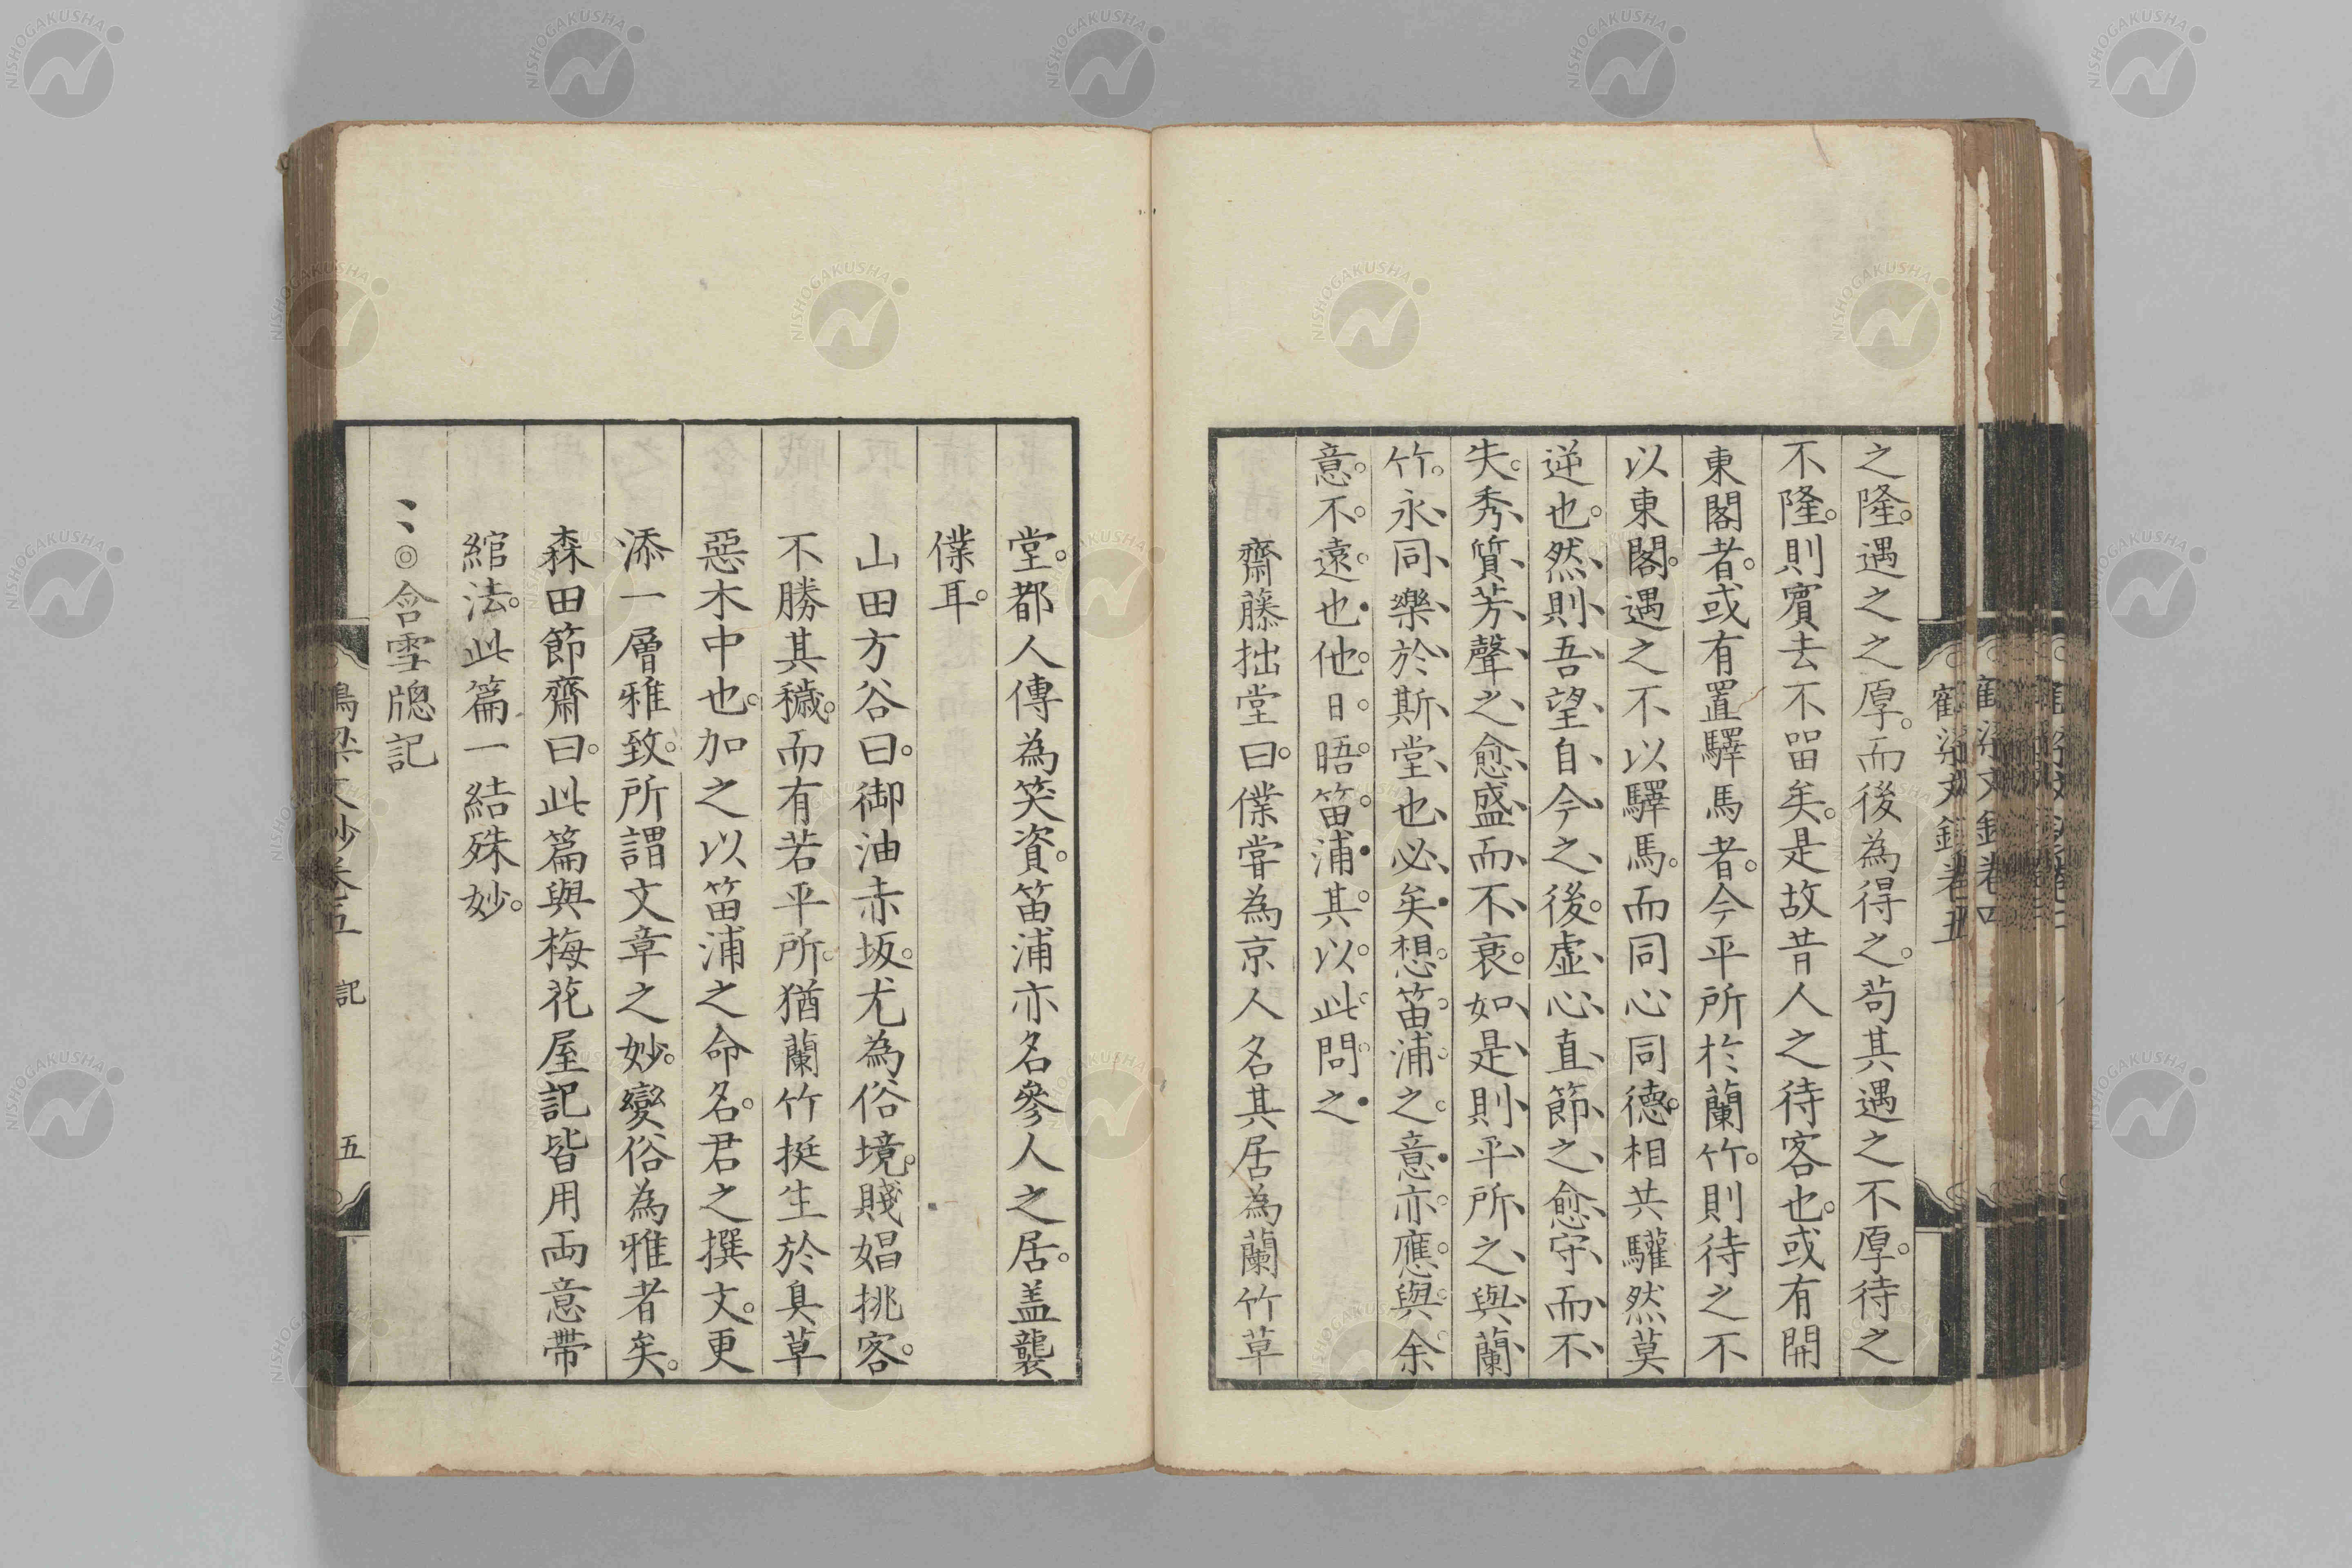 之隆。遇之之厚。而後為得之。苟其遇之不厚。待之
不隆。則賓去不畱矣。是故昔人之待客也。或有開
東閣者。或有置驛馬者。今平所於蘭竹。則待之不
以東閣。遇之不以驛馬。而同心同德。相共驩然莫
逆也。然則吾望自今之後。虛心直節之愈守而不
失。秀質芳聲之愈盛而不衰。如是則平所之與蘭
竹。永同樂於斯堂也必矣。想笛浦之意亦應與余
意不遠也。他日晤笛浦。其以此問之
齋藤拙堂曰。僕甞為京人名其居為蘭竹草
堂。都人傳為笑資。笛浦亦名參人之居。盖襲
僕耳。
山田方谷曰。御油赤坂。尤為俗境。賤娼挑客。
不勝其穢。而有若平所。猶蘭竹挺生於臭草
惡木中也。加之以笛浦之命名。君之撰文。更
添一層雅致。所謂文章之妙。變俗為雅者矣。
森田節齋曰。此篇與梅花屋記皆用両意帶
綰法。此篇一結殊妙。
、、◎含雪牕記
鳴梁文鈔卷五 記 五
NISHOGAKUSHA